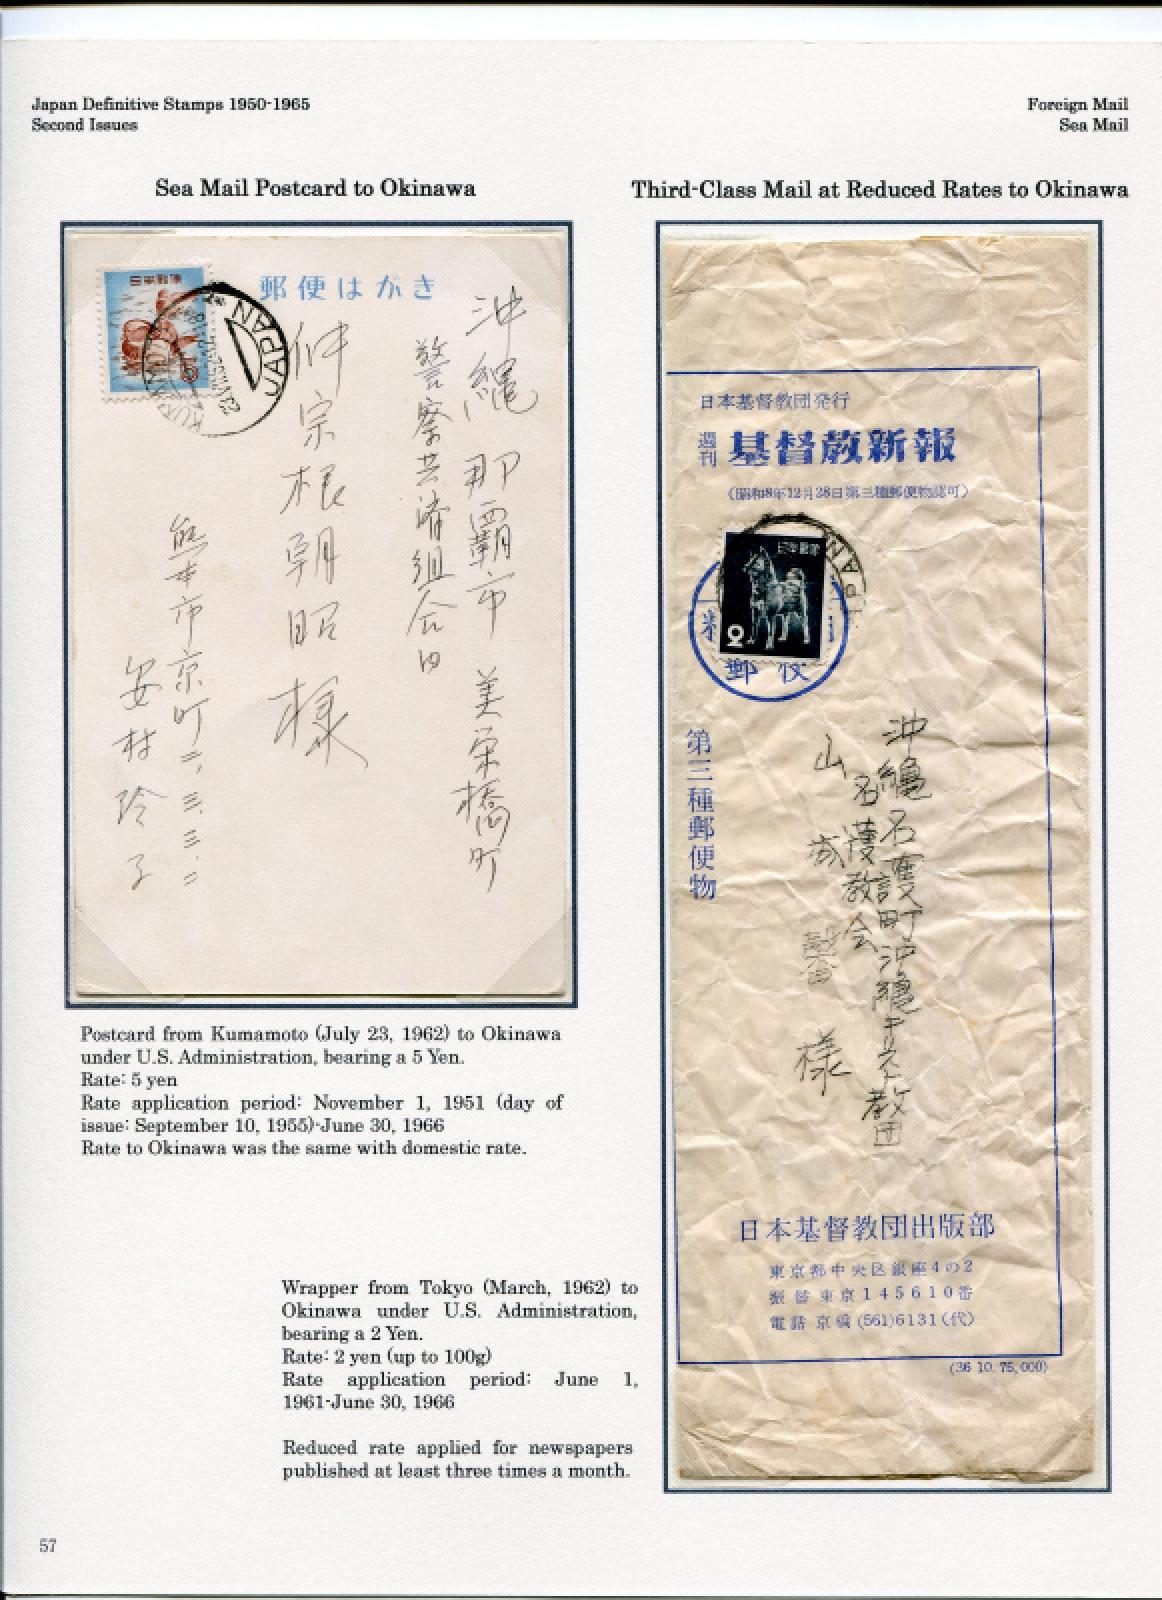 Japan Definitive Stamps 1950-1965
Second Issues
Foreign Mail
Sea Mail
Sea Mail Postcard to Okinawa
日本郵便
JAPAN
郵便はがき
沖縄 那覇市 美栄橋町
警察共済組合内
仲宗根朝昭様
熊本市京町二、三、三、二
安村玲子
Postcard from Kumamoto (July 23, 1962) to Okinawa
under U.S. Administration, bearing a 5 Yen.
Rate: 5 yen
Rate application period: November 1, 1951 (day of
issue: September 10, 1955)-June 30, 1966
Rate to Okinawa was the same with domestic rate.
Third-Class Mail at Reduced Rates to Okinawa
日本基督教団発行
週刊 基督教新報
(昭和8年12月28日第三種郵便物認可)
日本郵便
2
郵便
第三種郵便物
沖縄名護町沖縄キリスト教団
名護教会
山城
様
日本基督教団出版部
東京都中央区銀座4の2
振替東京145610番
電話 京橋(561)6131(代)
(36 10. 75,000)
Wrapper from Tokyo (March, 1962) to
Okinawa under U.S. Administration,
bearing a 2 Yen.
Rate: 2 yen (up to 100g)
Rate application period: June 1,
1961-June 30, 1966
Reduced rate applied for newspapers
published at least three times a month.
57